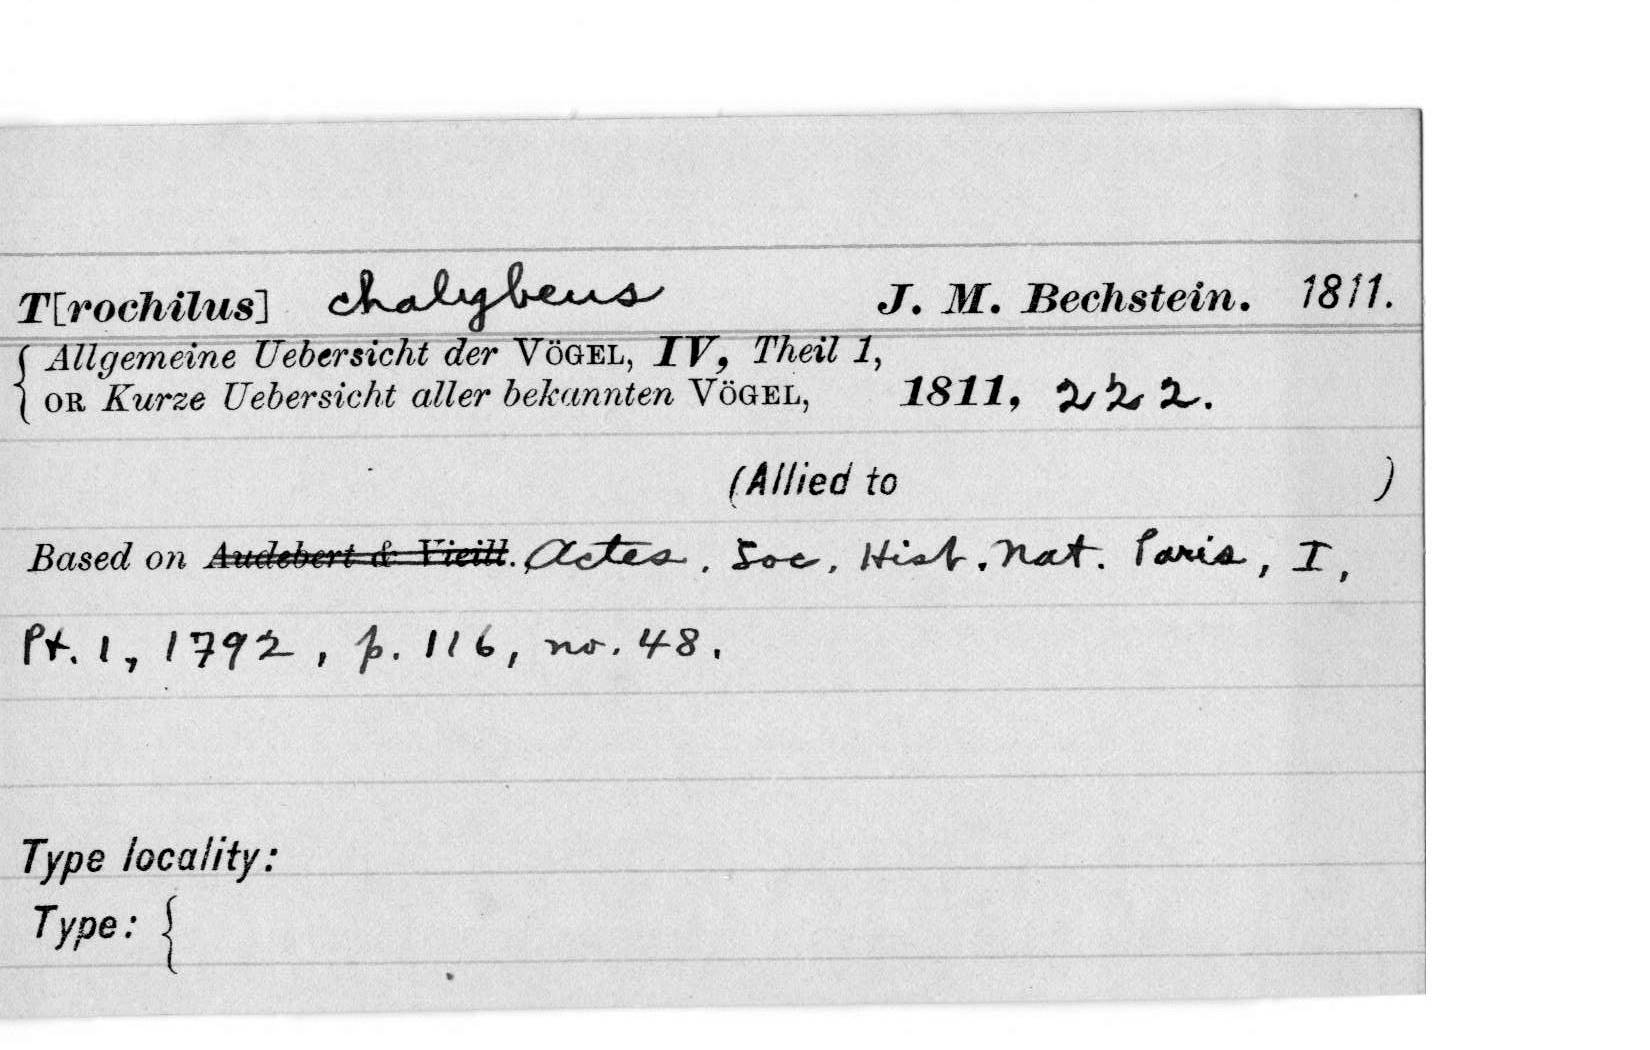 T[rochilus] chalybeus J. M. Bechstein. 1811.
{ Allgemeine Uebersicht der VÖGEL, IV, Theil 1,
OR Kurze Uebersicht aller bekannten VÖGEL, 1811, 222.
(Allied to )
Based on Audebert & Vieill. Actes. Soc. Hist. Nat. Paris, I,
Pt. 1, 1792, p. 116, no. 48.
Type locality:
Type: {